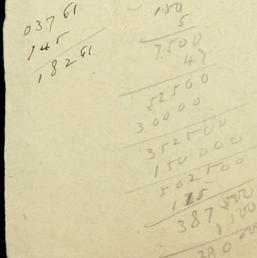 03761
145
18261
150
5
7500
47
52500
30000
352500
150000
502500
115
387500
1500
380